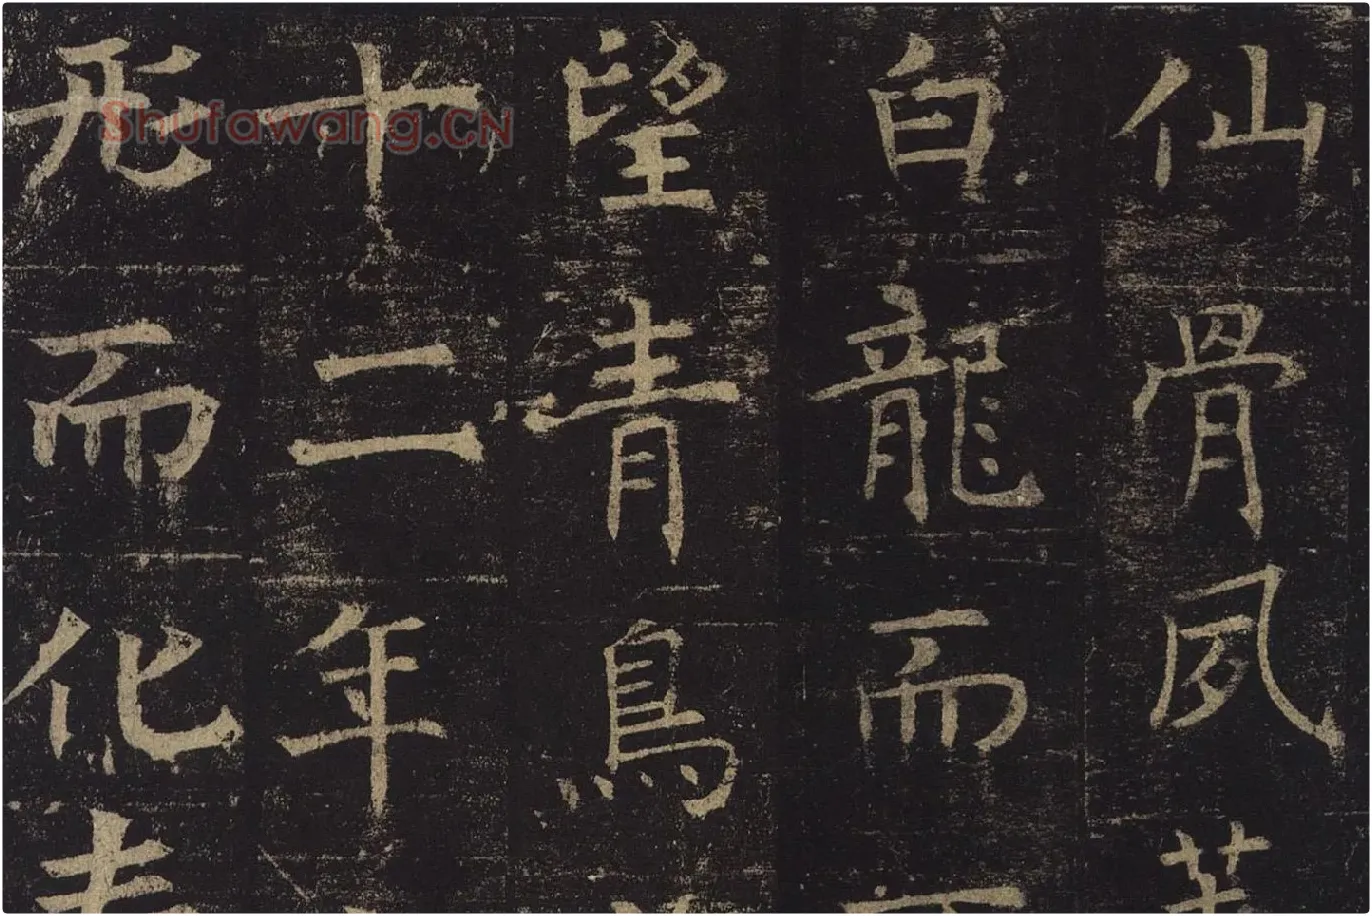 仙骨夙
白龍而
望青鳥
十二年
无而化
Shufawang.CN